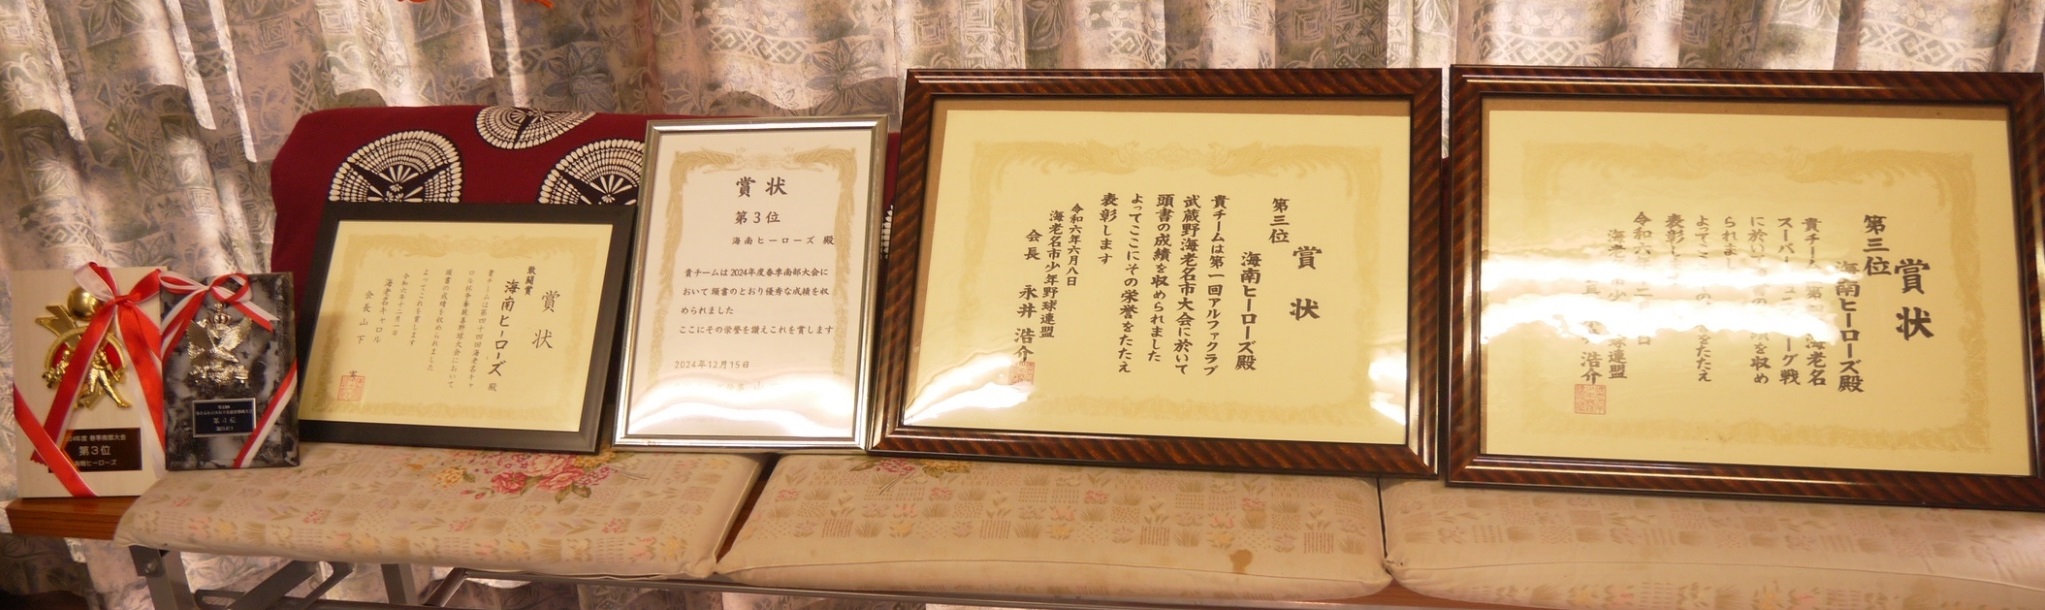 第3位
第3位
賞状
敢闘賞
海南ヒーローズ 殿
頭書の成績を収められました
よってこれを賞します
令和六年十二月一日
海老名キャロル
会長 山下
賞状
第3位
海南ヒーローズ 殿
貴チームは2024年度春季南部大会に
おいて頭書のとおり優秀な成績を収
められました
ここにその栄誉を讃えこれを賞します
2024年12月15日
賞状
第三位
海南ヒーローズ殿
貴チームは第一回アルファクラブ
武蔵野海老名市大会に於いて
頭書の成績を収められました
よってここにその栄誉をたたえ
表彰します
令和六年六月八日
海老名市少年野球連盟
会長 永井 浩介
賞状
第三位
海南ヒーローズ殿
貴チーム 海老名
スーパー ーグ戦
に於い を収め
られまし
よってこ をたたえ
表彰し
令和六
浩介